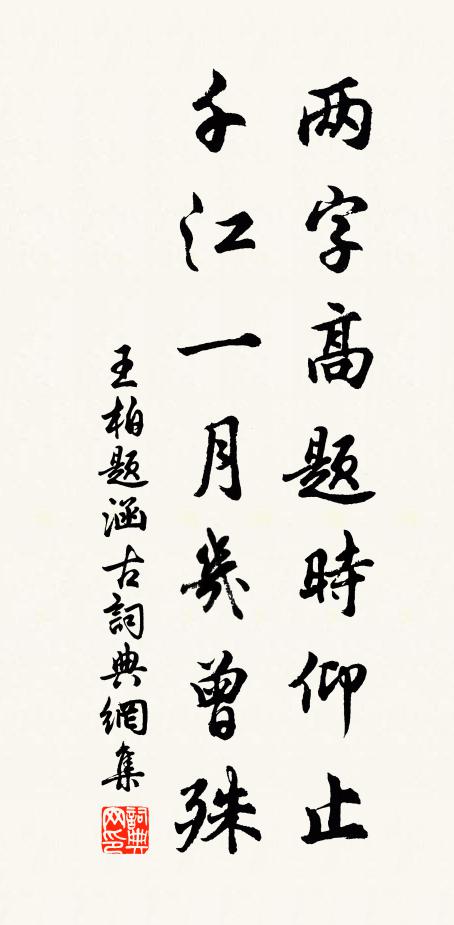 两字高题時仰止
千江一月幾曾殊
王柏题涵古詞典網集
詞典网印